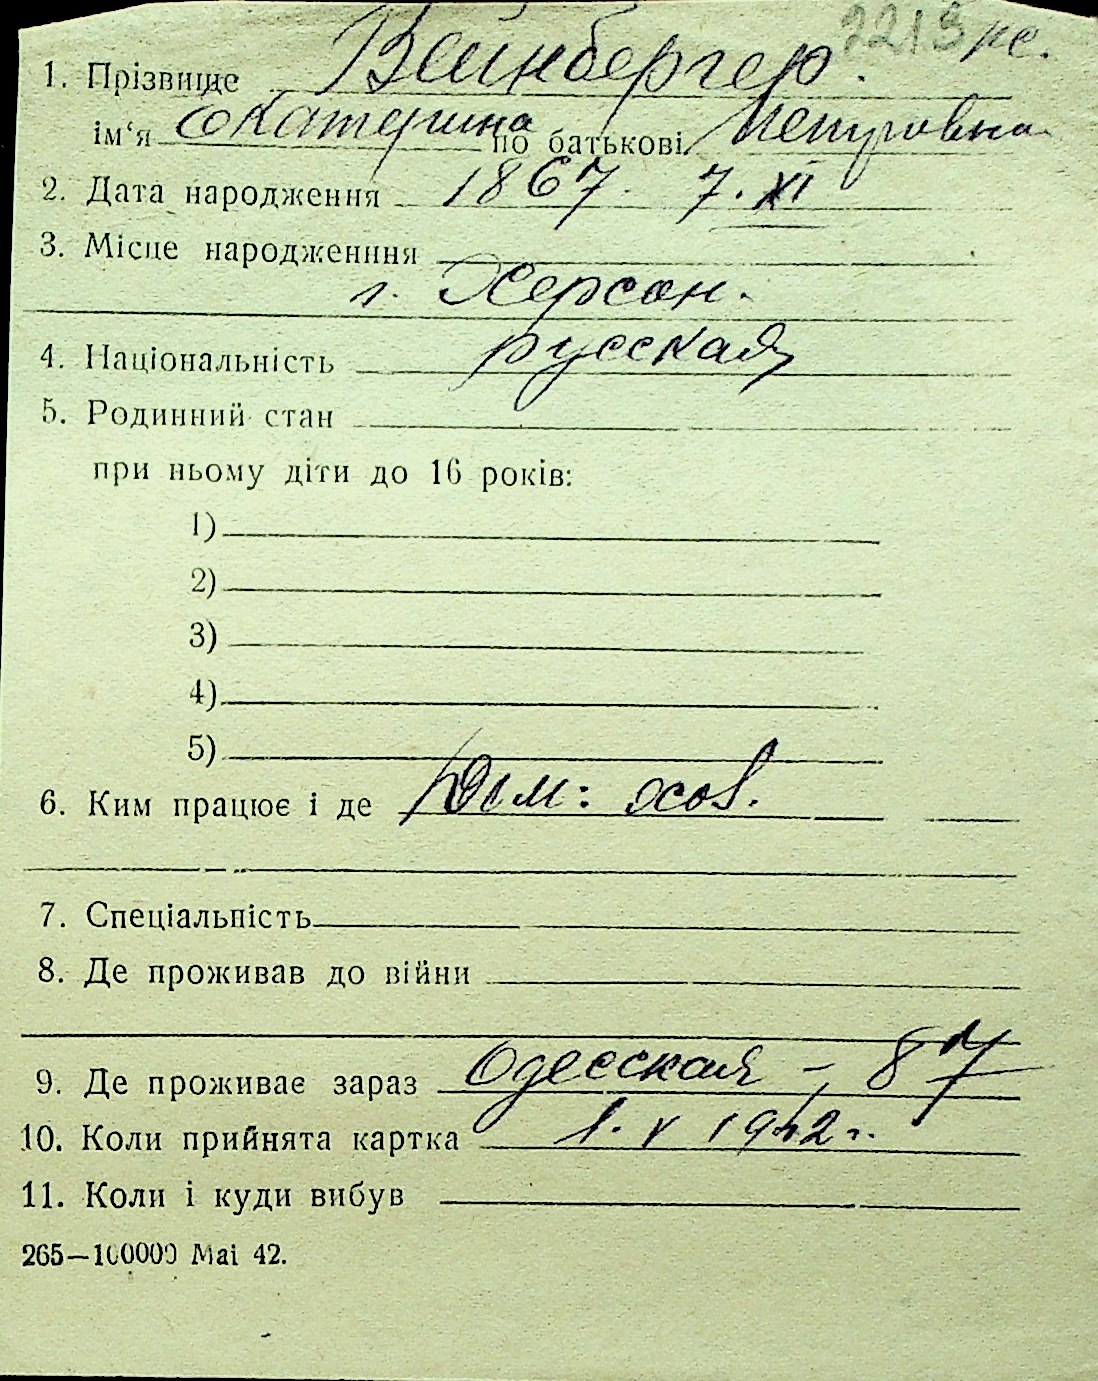 2213 рс.
1. Прізвище Вейнбергер.
ім‘я Екатерина по батькові Петровна
2. Дата народження 1867. 7. XI
3. Місце народженння
г. Херсон.
4. Національність русская
5. Родинний стан
при ньому діти до 16 років:
1)
2)
3)
4)
5)
6. Ким працює і де Дом: хоз.
7. Спеціальність
8. Де проживав до війни
9. Де проживає зараз Одесская – 87
10. Коли прийнята картка 1. V 1942 г.
11. Коли і куди вибув
265—100000 Mai 42.